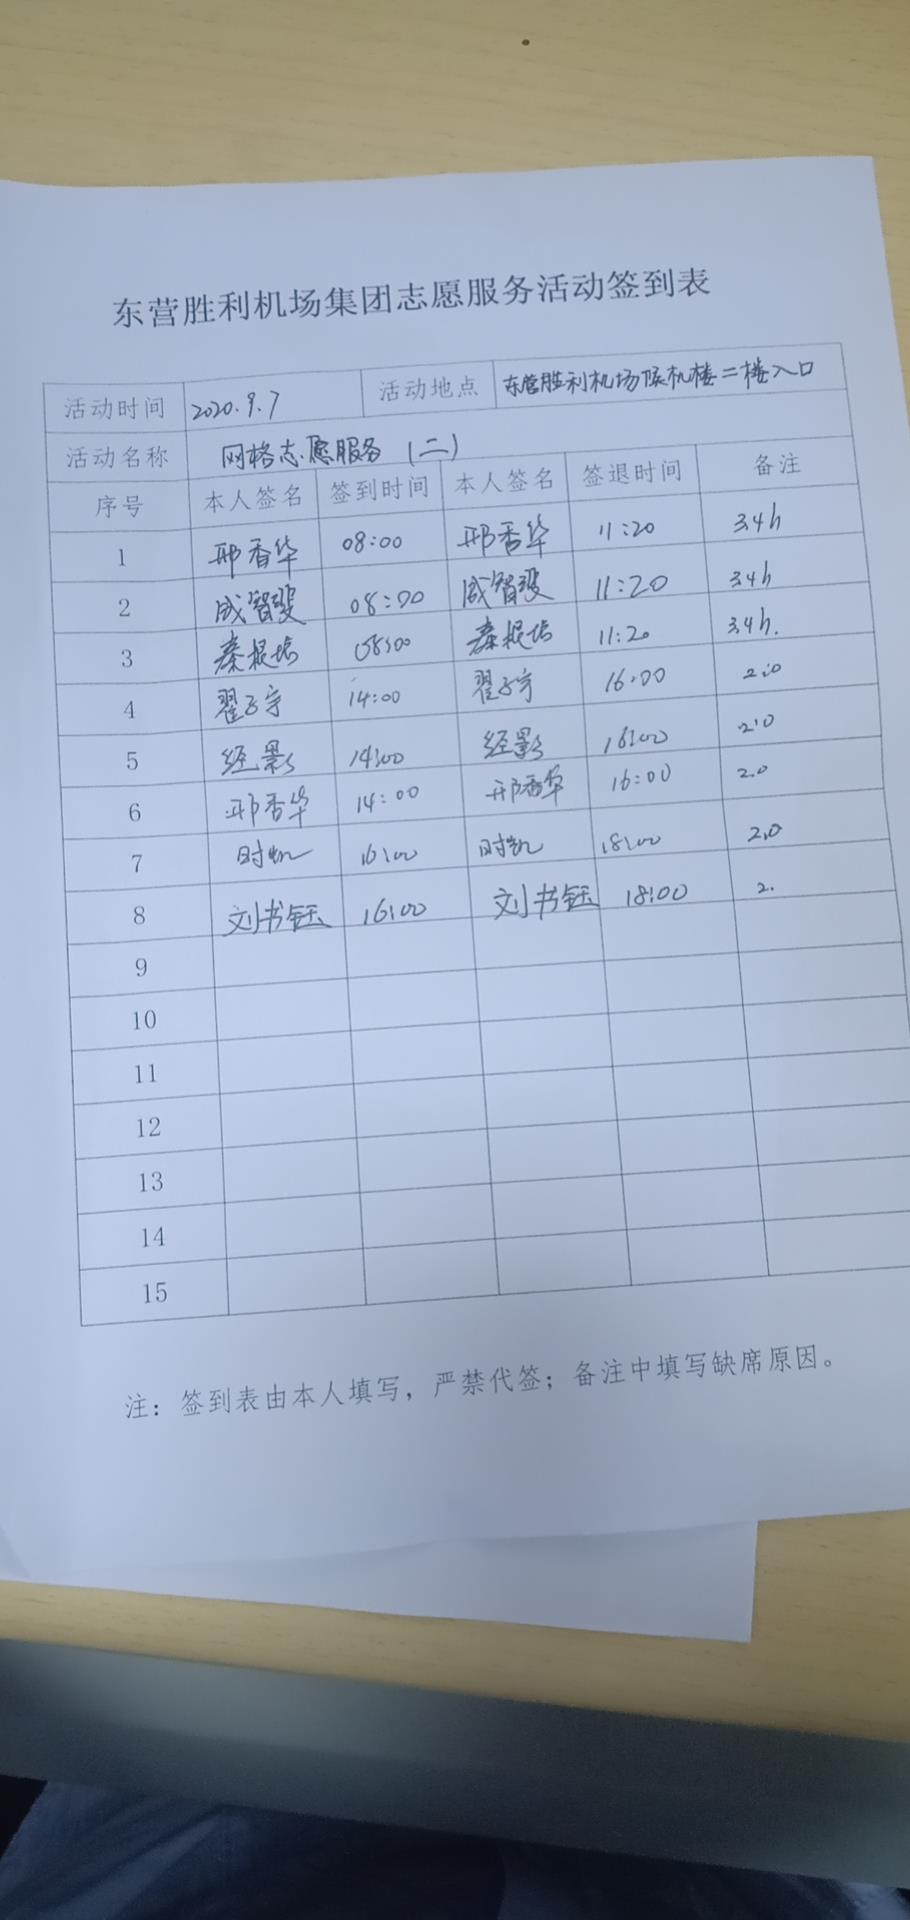 东营胜利机场集团志愿服务活动签到表
活动时间 2020.9.7 活动地点 东营胜利机场候机楼二楼入口
活动名称 网格志愿服务（二）
序号 本人签名 签到时间 本人签名 签退时间 备注
1 邢香华 08:00 邢香华 11:20 3.4h
2 成智斐 08:00 成智斐 11:20 3.4h
3 秦 08:00 秦 11:20 3.4h.
4 翟子宇 14:00 翟子宇 16:00 2.0
5 经影 14:00 经影 16:00 2.0
6 邢香华 14:00 邢香华 16:00 2.0
7 时凯 16:00 时凯 18:00 2.0
8 刘书钰 16:00 刘书钰 18:00 2.
9
10
11
12
13
14
15
注：签到表由本人填写，严禁代签；备注中填写缺席原因。